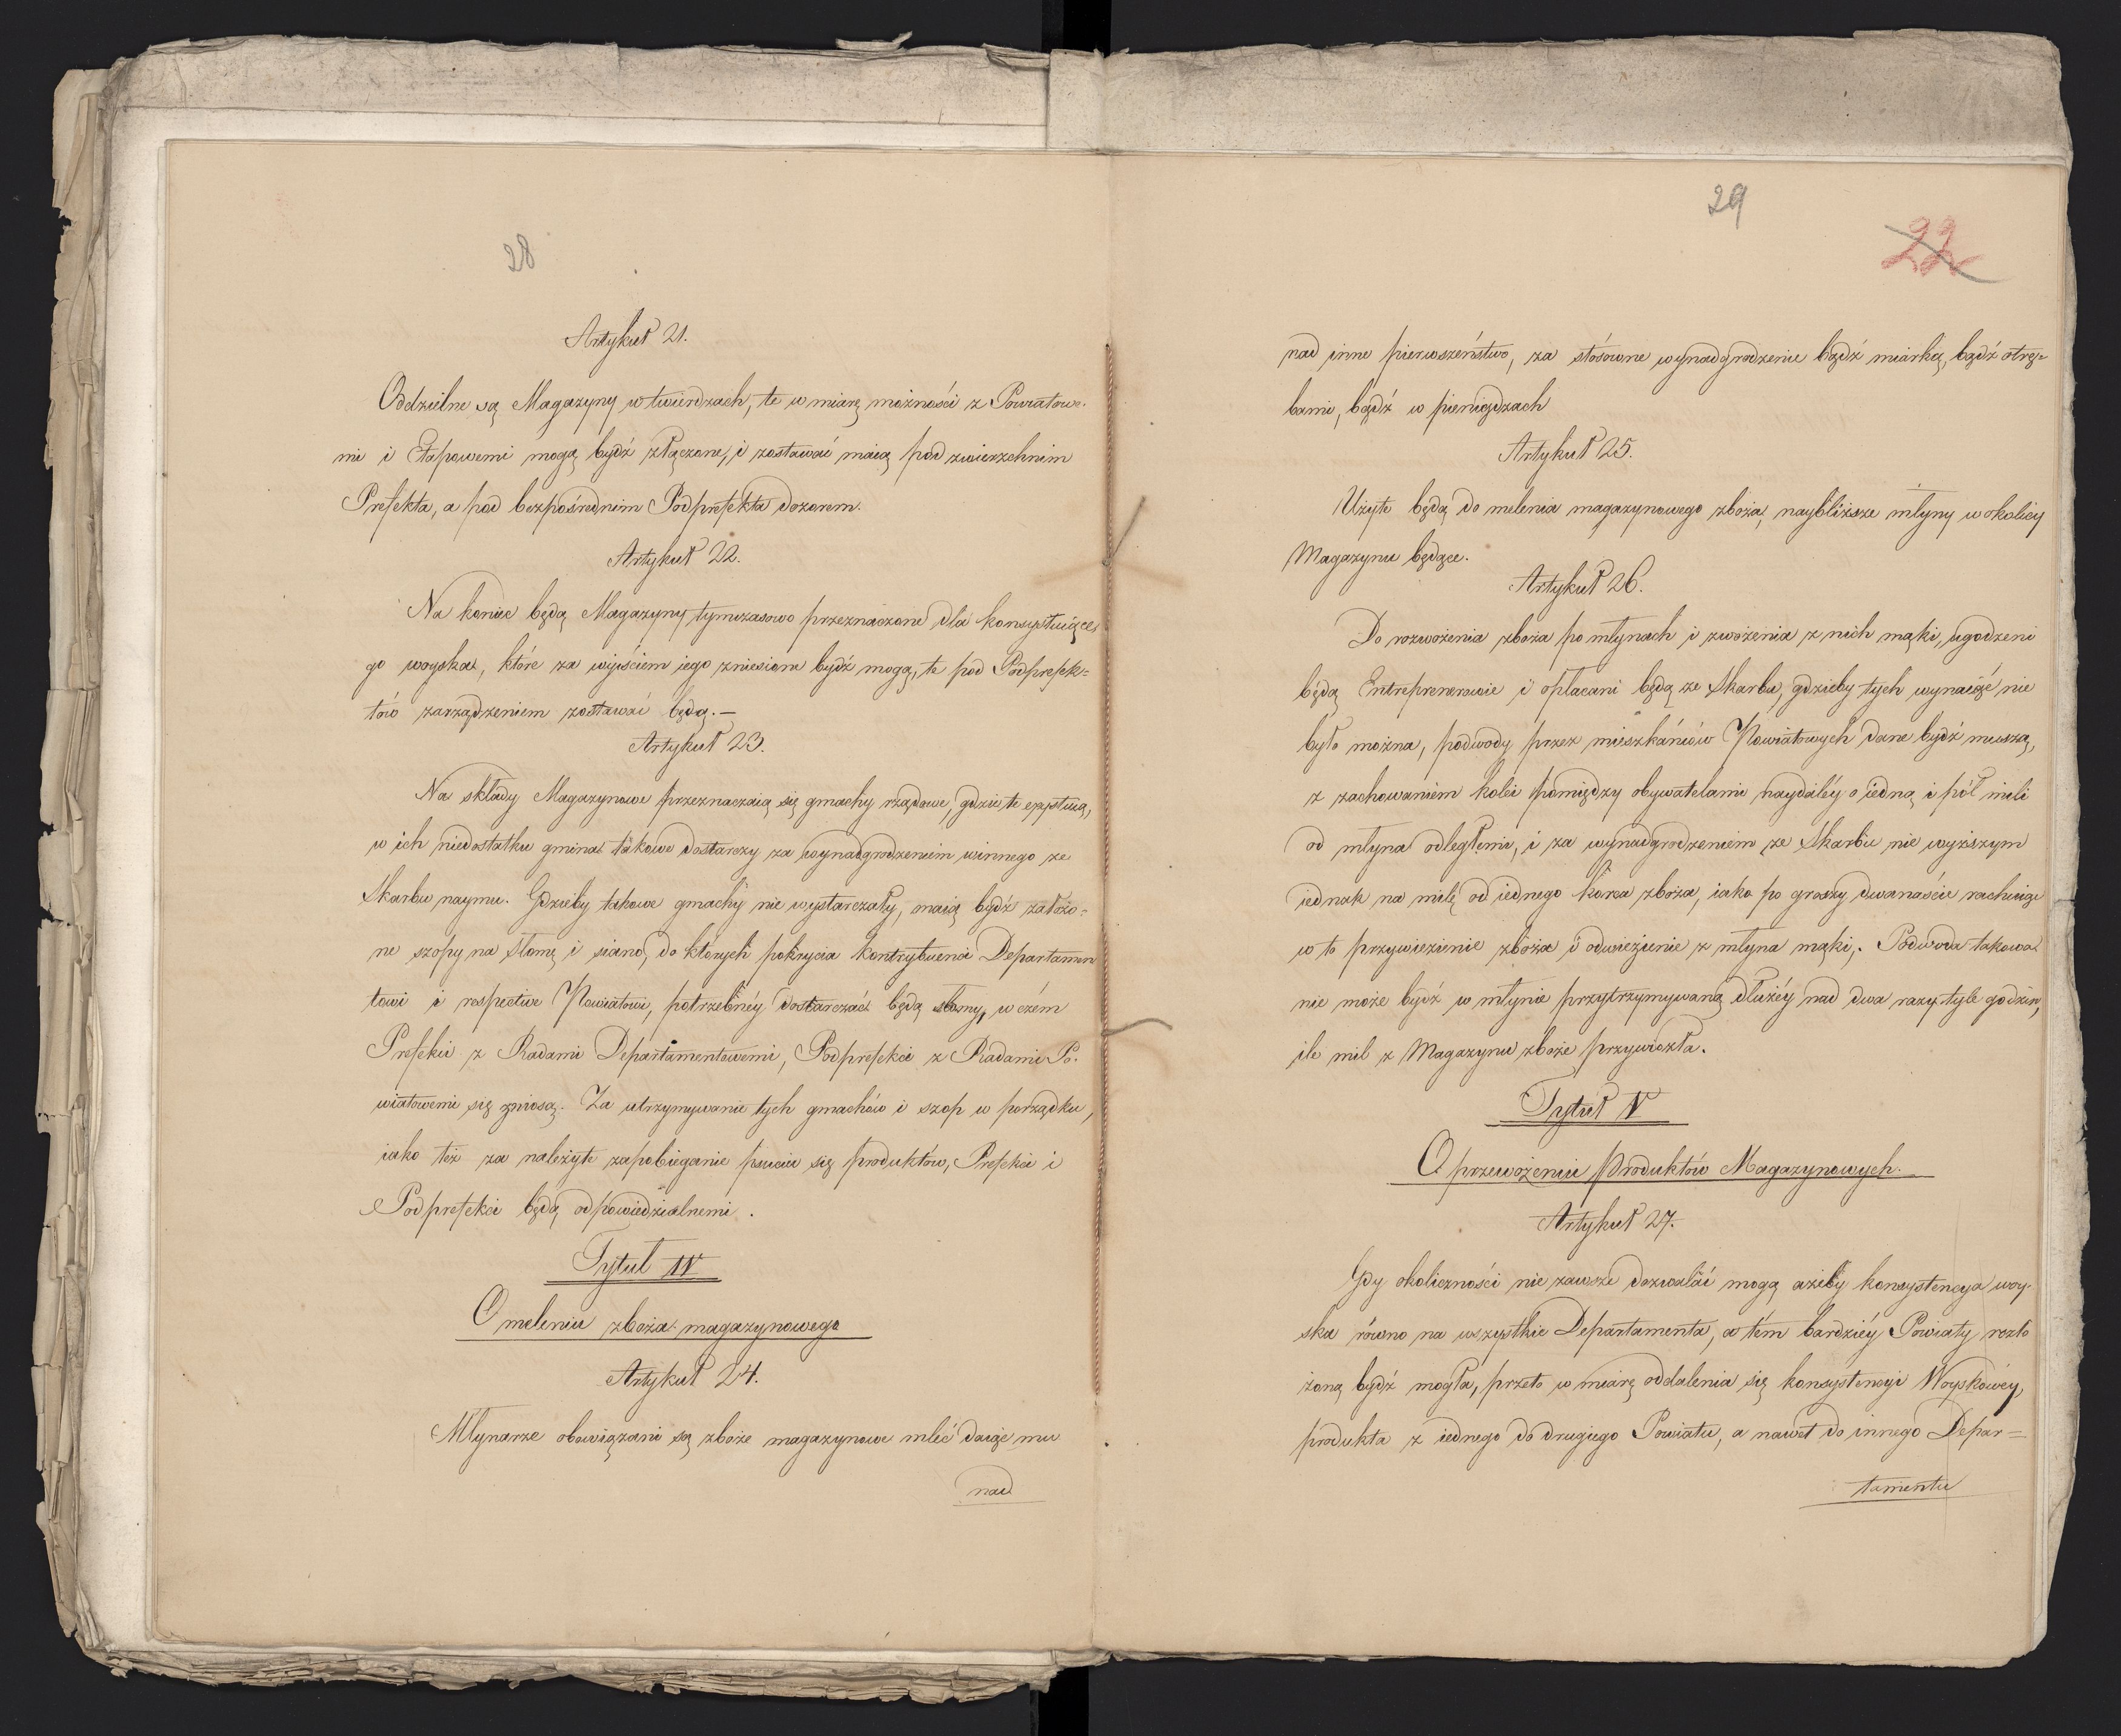 28
Artykuł 21.
Oddzielne są Magazyny w twierdzach, te w miarę możności z Powiatowe-
mi i Etapowemi mogą bydź złączone, i zostawać maią pod zwierzchnim
Prefekta, a pod bezpośrednim Podprefekta dozorem.
Artykuł 22.
Na koniec będą Magazyny tymczasowo przeznaczone dla konsystuiące
go woyska, które za wyjściem iego zniesione bydź mogą, te pod Podprefek=
tów zarządzeniem zostawać będą.—
Artykuł 23.
Na składy Magazynowe przeznaczaią się gmachy rządowe, gdzie te exystuią,
w ich niedostatku gmina takowe dostarczy za wynadgrodzeniem winnego ze
Skarbu naymu. Gdzieby takowe gmachy nie wystarczały, maią bydź założo=
ne szopy na słomę i siano, do których pokrycia kontrybuenci Departamen
towi i respective Powiatowi, potrzebnéy dostarczać będą słomy, w czém
Prefekci z Radami Departamentowemi, Podprefekci z Radami Po-
wiatowemi się zniosą. Za utrzymywanie tych gmachów i szop w porządku,
iako też za należyte zapobieganie psuciu się produktów, Prefekci i
Podprefekci będą odpowiedzialnemi.
Tytuł IV
O meleniu zboża magazynowego
Artykuł 24.
Młynarze obowiązani są zboże magazynowe mleć daiąc mu
nad
29
22
nad inne pierwszeństwo, za stósowne wynadgrodzenie bądź miarką, bądź otrę=
bami, bądź w pieniądzach
Artykuł 25.
Użyte będą do melenia magazynowego zboża, naybliższe młyny w okolicy
Magazynu będące.
Artykuł 26.
Do rozwożenia zboża po młynach i zwożenia z nich mąki, ugodzeni
będą Entreprenerowie i opłacani będą ze Skarbu, gdzieby tych wynaiąć nie
było można, podwody przez mieszkańców Powiatowych dane bydź muszą,
z zachowaniem kolei pomiędzy obywatelami naydaléy o iedną i pół mili
od młyna odległemi, i za wynadgrodzeniem ze Skarbu nie wyższym
iednak na milę od iednego korca zboża, iako po groszy dwanaście rachuiąc
w to przywiezienie zboża i odwiezienie z młyna mąki,. Podwoda takowa
nie może bydź w młynie przytrzymywaną dłużéy nad dwa razy tyle godzin,
ile mil z Magazynu zboże przywiozła.
Tytuł V
O przewożeniu Produktów Magazynowych.
Artykuł 27.
Gdy okoliczności nie zawsze dozwalać mogą ażeby konsystencya woy-
ska równo na wszystkie Departamenta, a tém bardziéy Powiaty rozło
żoną bydź mogła, przeto w miarę oddalenia się konsystencyi Woyskowéy,
produkta z iednego do drugiego Powiatu, a nawet do innego Depar=
tamentu